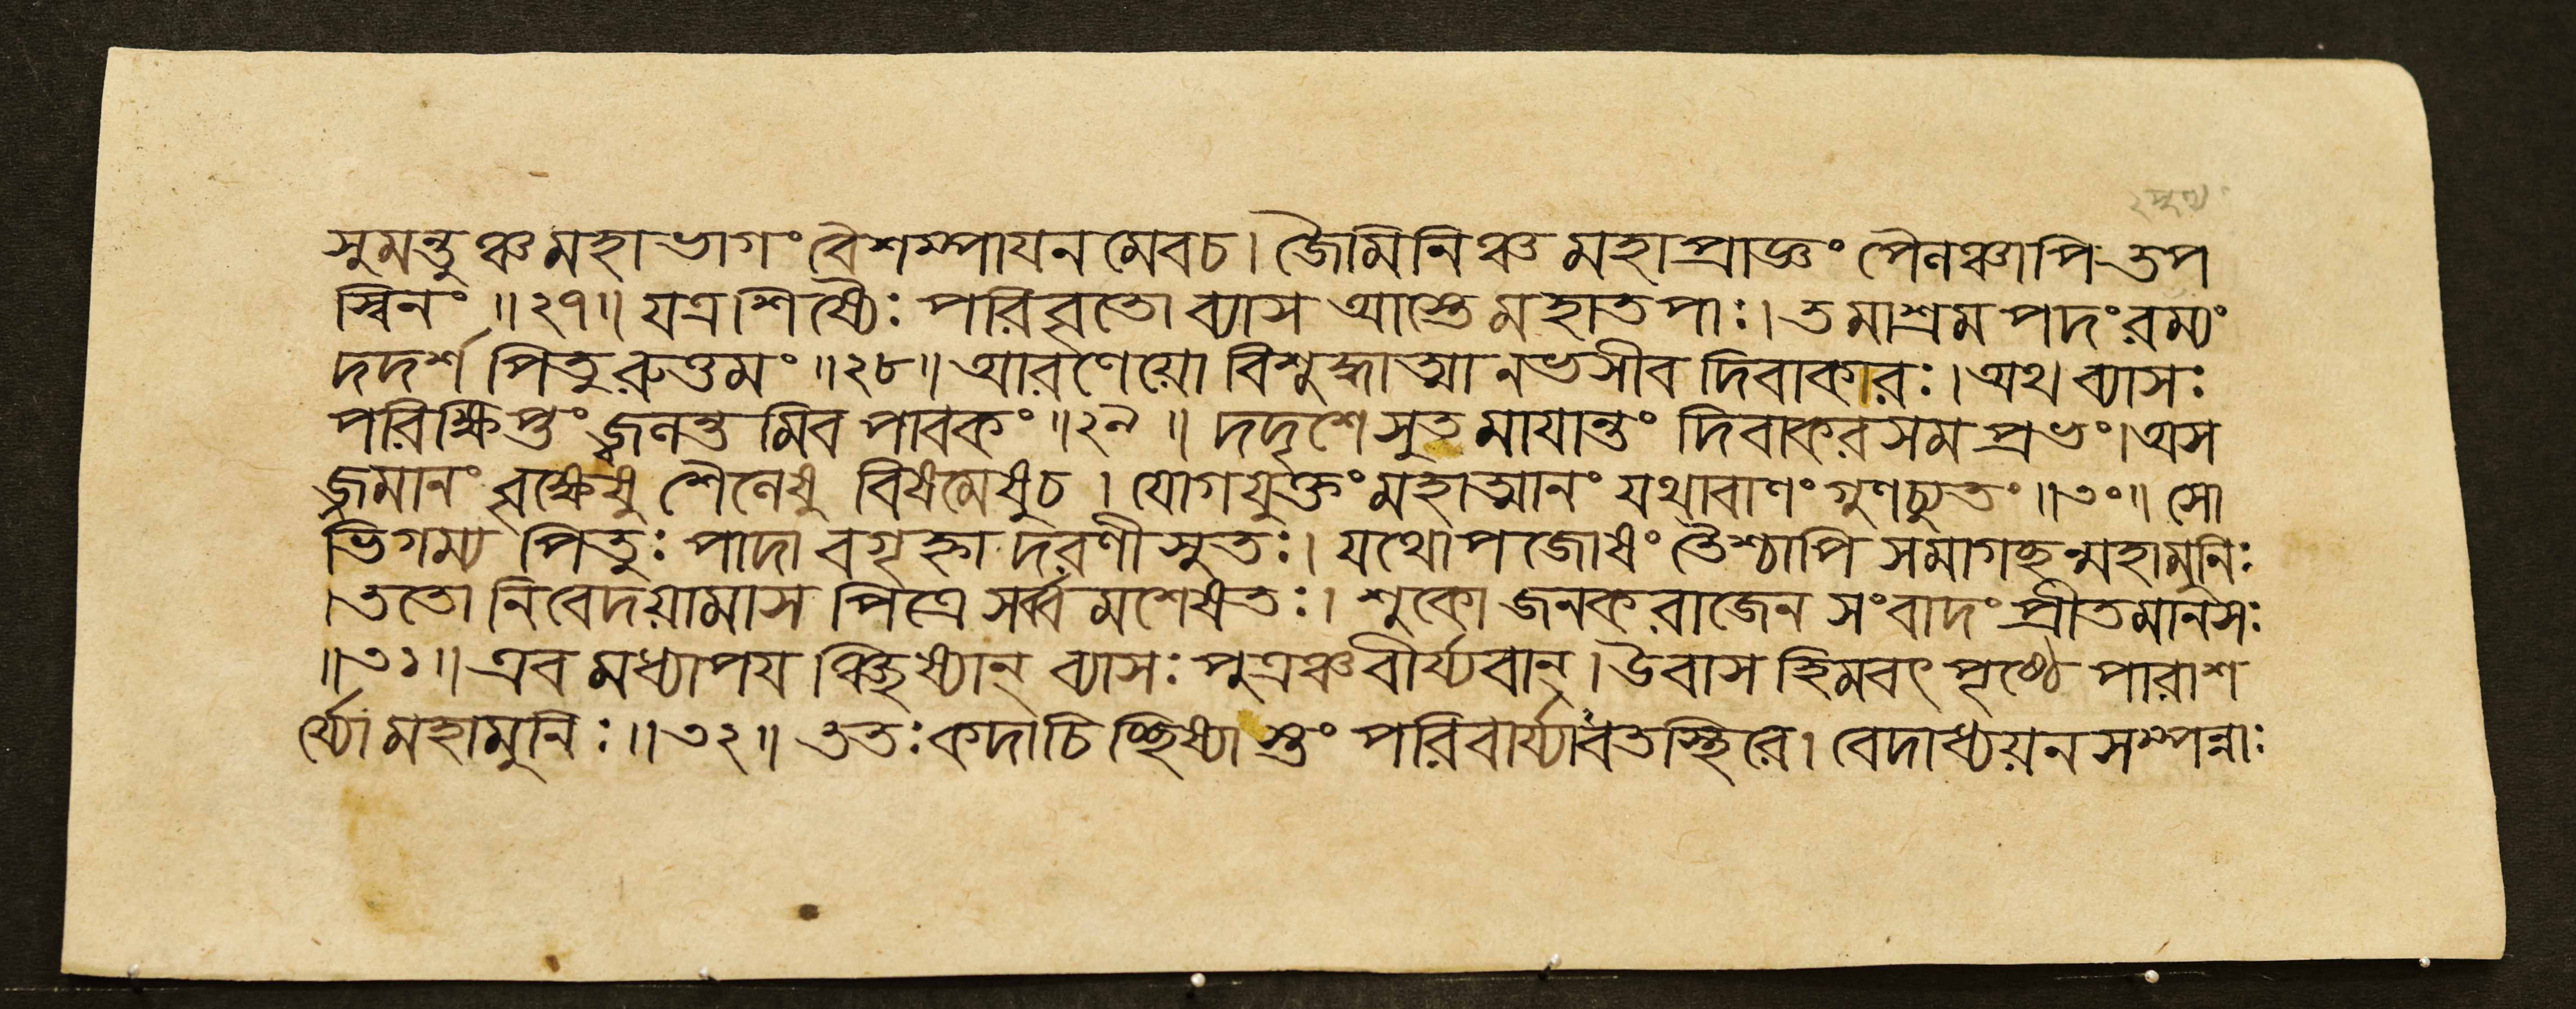 সুমন্তুঞ্চ মহাভাগং বৈশম্পাযন মেবচ। জৈমিনিঞ্চ মহাপ্রাজ্ঞং পৈনঞ্চাপি তপ
স্বিনং ॥২৭॥ যত্র শিষ্যৈঃ পরিবৃতো ব্যাস আস্তে মহাতপাঃ। তমাশ্রম পদং রম্যং
দদর্শ পিতুরুত্তমং ॥২৮॥ আরণেয়ো বিশুদ্ধাত্মা নভসীব দিবাকারঃ। অথ ব্যাসঃ
পরিক্ষিপ্তং জ্বলন্তমিব পাবকং ॥২৯॥ দদৃশে সুতমাযান্তং দিবাকর সমপ্রভং। অস
জ্জমানং বৃক্ষেষু শৈলেষু বিষমেষুচ। যোগযুক্তং মহাত্মানং যথাবাণং গুণচ্যুতং ॥৩০॥ সো
ভিগম্য পিতুঃ পাদাবগৃহ্না দরণীসুতঃ। যথোপজোষং তৈশ্চাপি সমাগচ্ছন্মহামুনিঃ
। ততো নিবেদয়ামাস পিত্রে সর্ব্বমশেষতঃ। শুকো জনকরাজেন সংবাদং প্রীতমানসঃ
॥৩১॥ এবমধ্যাপযঞ্ছিষ্যান্ ব্যাসঃ পুত্রঞ্চ বীর্য্যবান্। উবাস হিমবৎ পৃষ্ঠে পারাশ
র্য্যো মহামুনিঃ ॥৩২॥ ততঃ কদাচিচ্ছিষ্যাস্তং পরিবার্য্যাবতস্থিরে। বেদাধ্যয়ন সম্পন্নাঃ